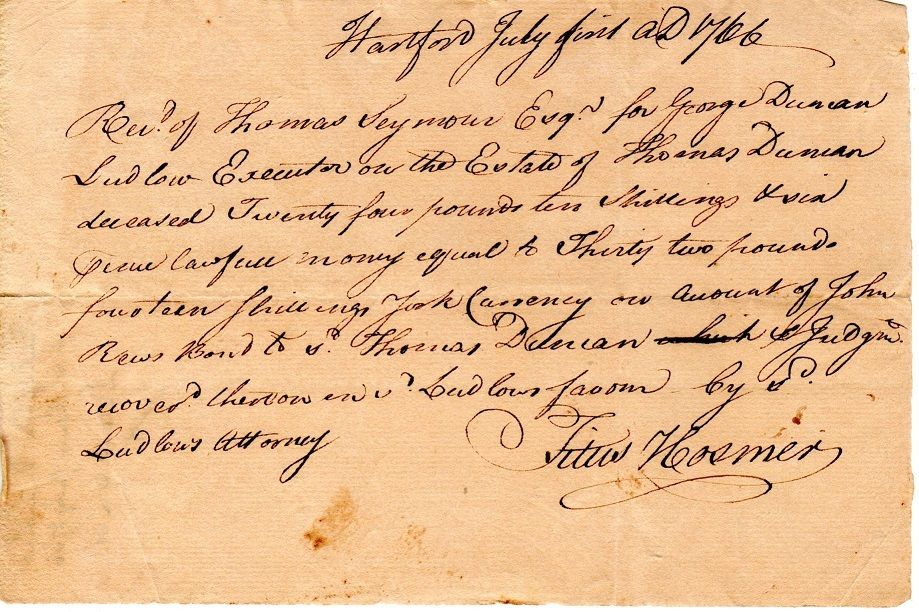 Hartford July first AD 1766
Rec.d of Thomas Seymour Esq.r for George Duncan
Ludlow Executor on the Estate of Thomas Duncan
deceased Twenty four pounds ten Shillings & six
pence lawfull money equal to Thirty two pounds
fourteen Shillings York Currency on account of John
Rews Bond to s.d Thomas Duncan & Judgm.t
recover.d thereon in s.d Ludlows favour by s.d
Ludlows Attorney
Titus Hosmer